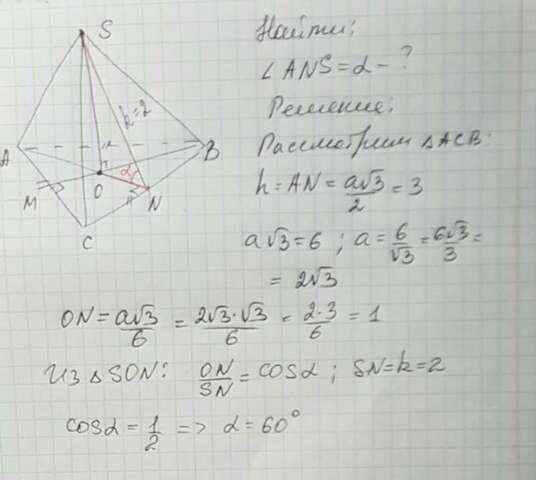 S
Найти:
∠ANS = α - ?
Решение:
Рассмотрим △ACB:
k=2
A
B
α
O
M
N
C
h = AN = a√3/2 = 3
a√3 = 6 ; a = 6/√3 = 6√3/3 =
= 2√3
ON = a√3/6 = 2√3·√3/6 = 2·3/6 = 1
Из △SON: ON/SN = cosα ; SN = k = 2
cosα = 1/2 => α = 60°